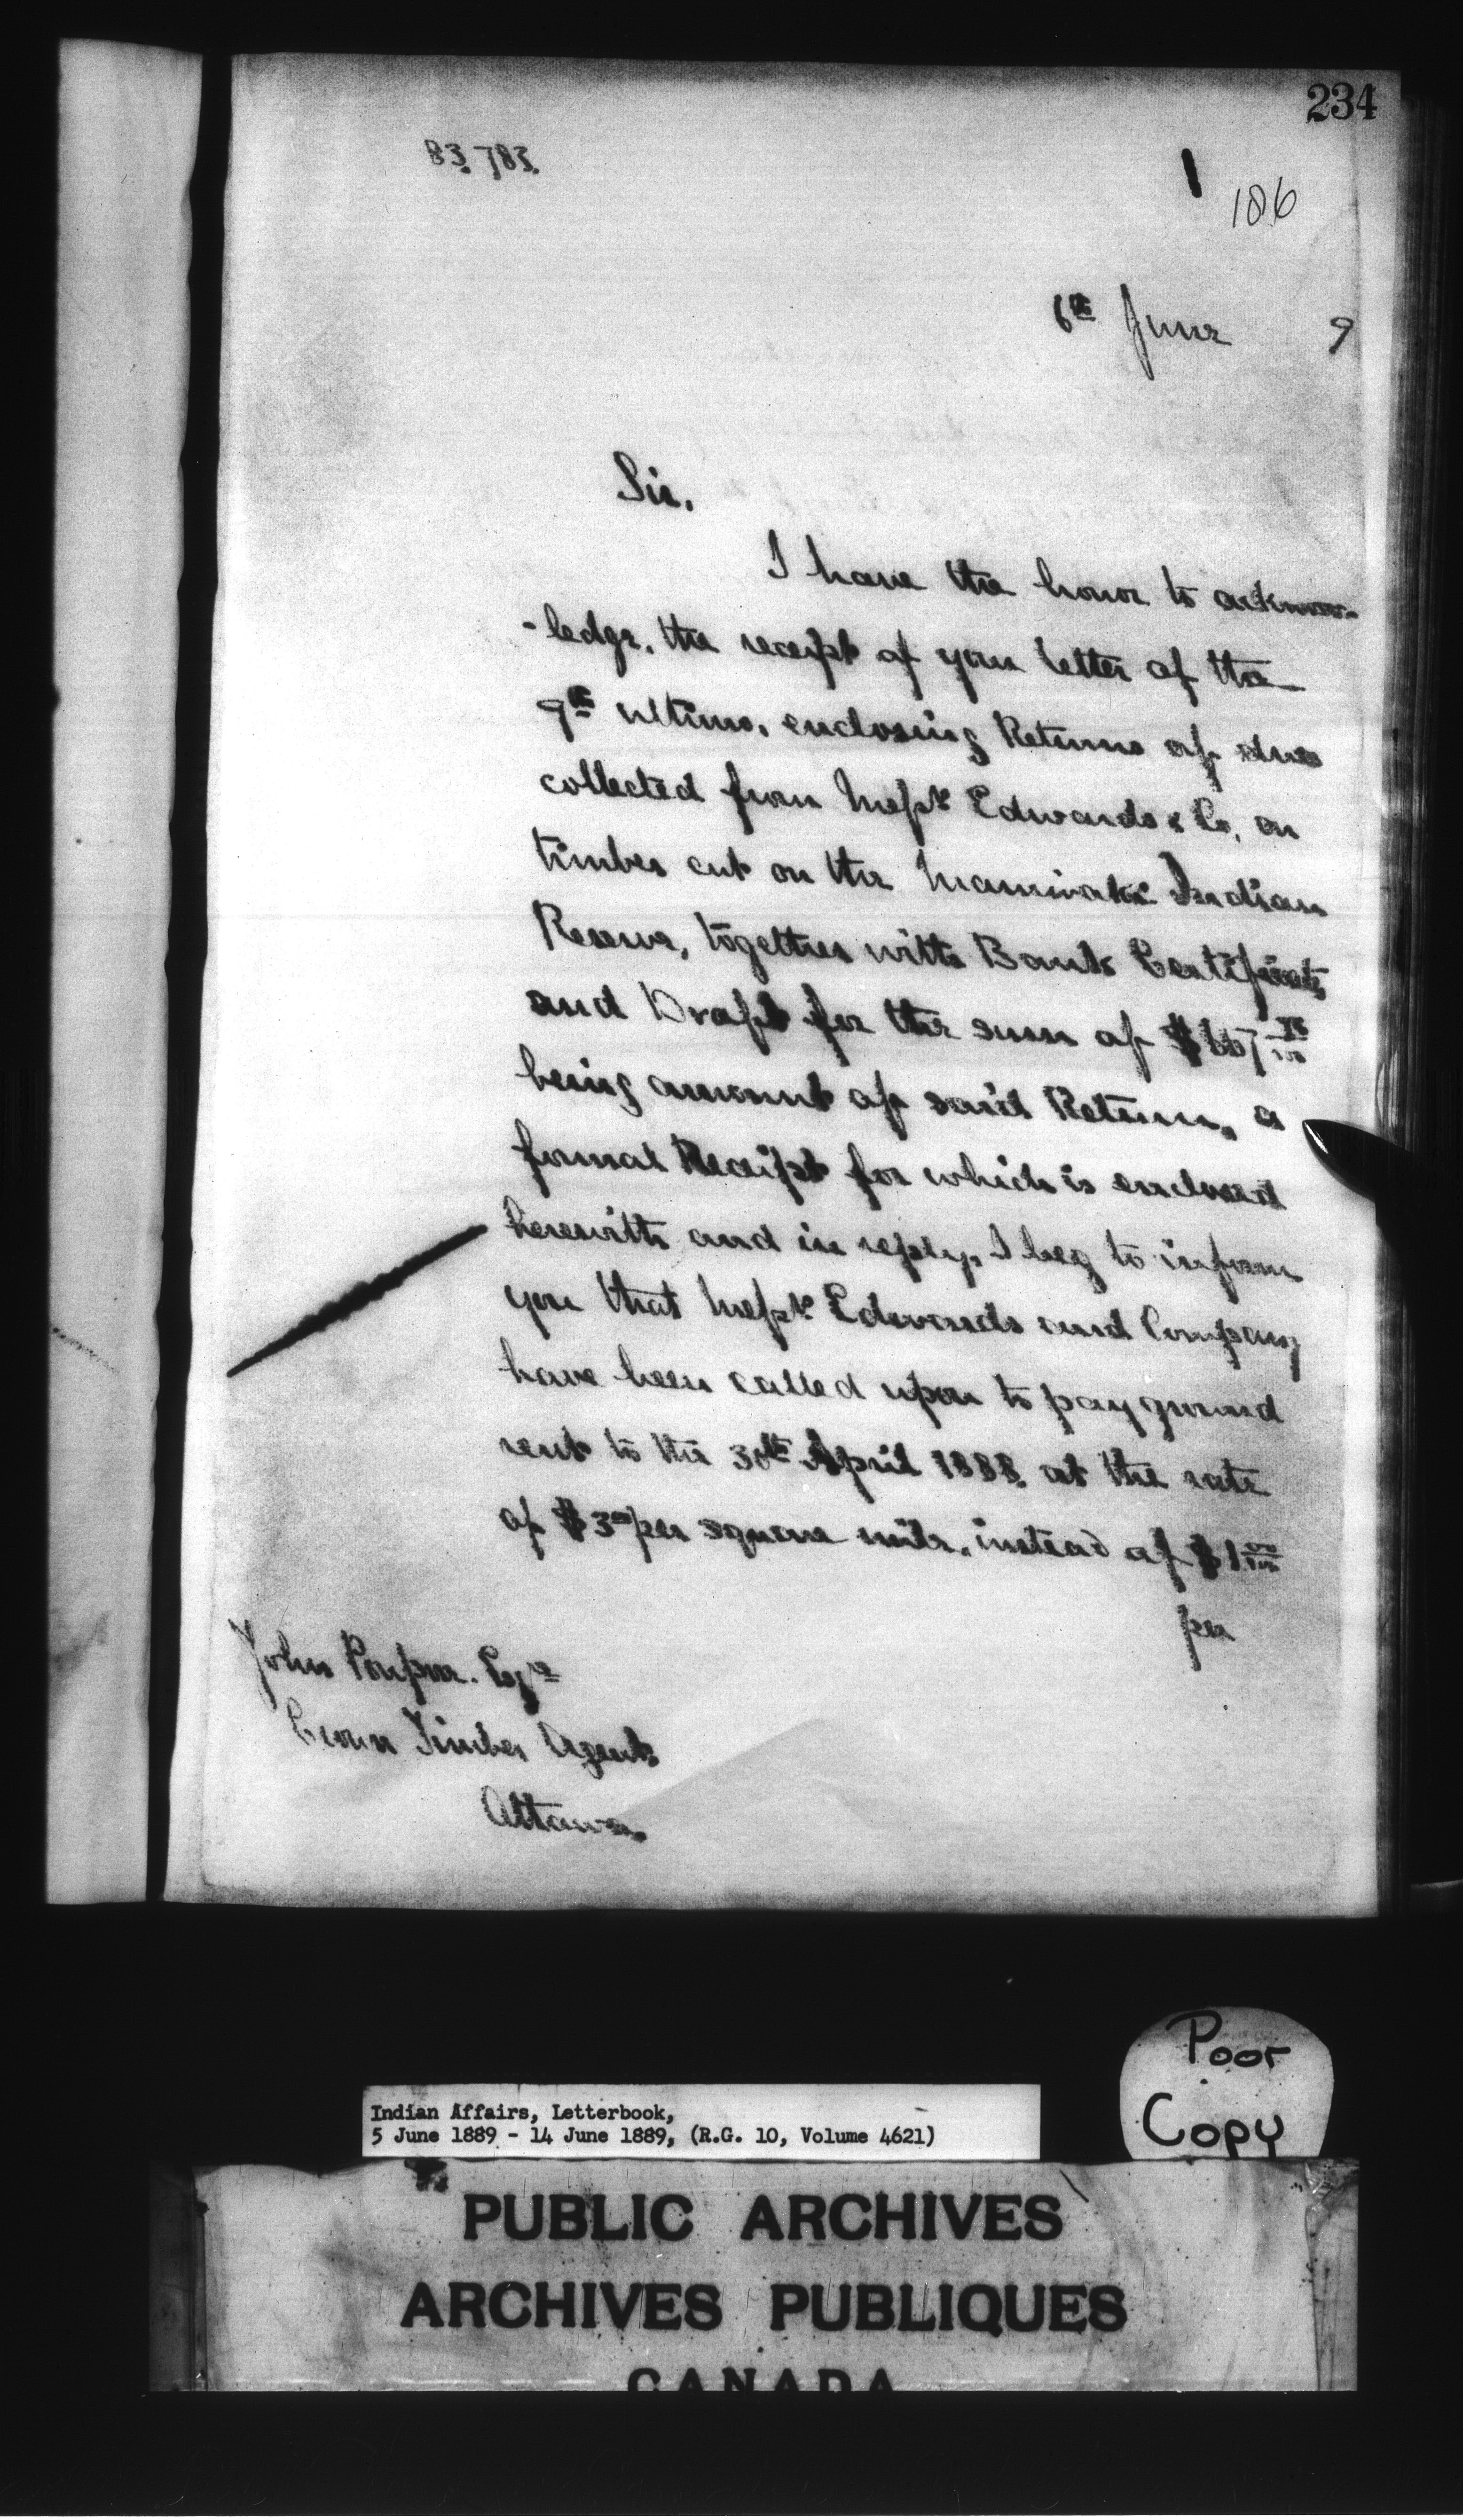 234
83.783.
186
6th June 9
Sir,
I have the honor to acknow-
-ledge, the receipt of your letter of the
9th ultimo, enclosing Returns of dues
collected from Messrs Edwards & Co, on
timber cut on the Maniwaki Indian
Reserve, together with Bank Certificate
and Draft for the sum of
being amount of said Return, a
formal Receipt for which is enclosed
herewith and in reply, I beg to inform
you that Messrs Edwards and Company
have been called upon to pay ground
rent to the 30th April 1888. at the rate
of $3.00 per square mile, instead of $1 00/100
per
John Poupore. Esqre
Crown Timber Agent
Ottawa.
Poor
Copy
Indian Affairs, Letterbook,
5 June 1889 - 14 June 1889, (R.G. 10, Volume 4621)
PUBLIC ARCHIVES
ARCHIVES PUBLIQUES
CANADA